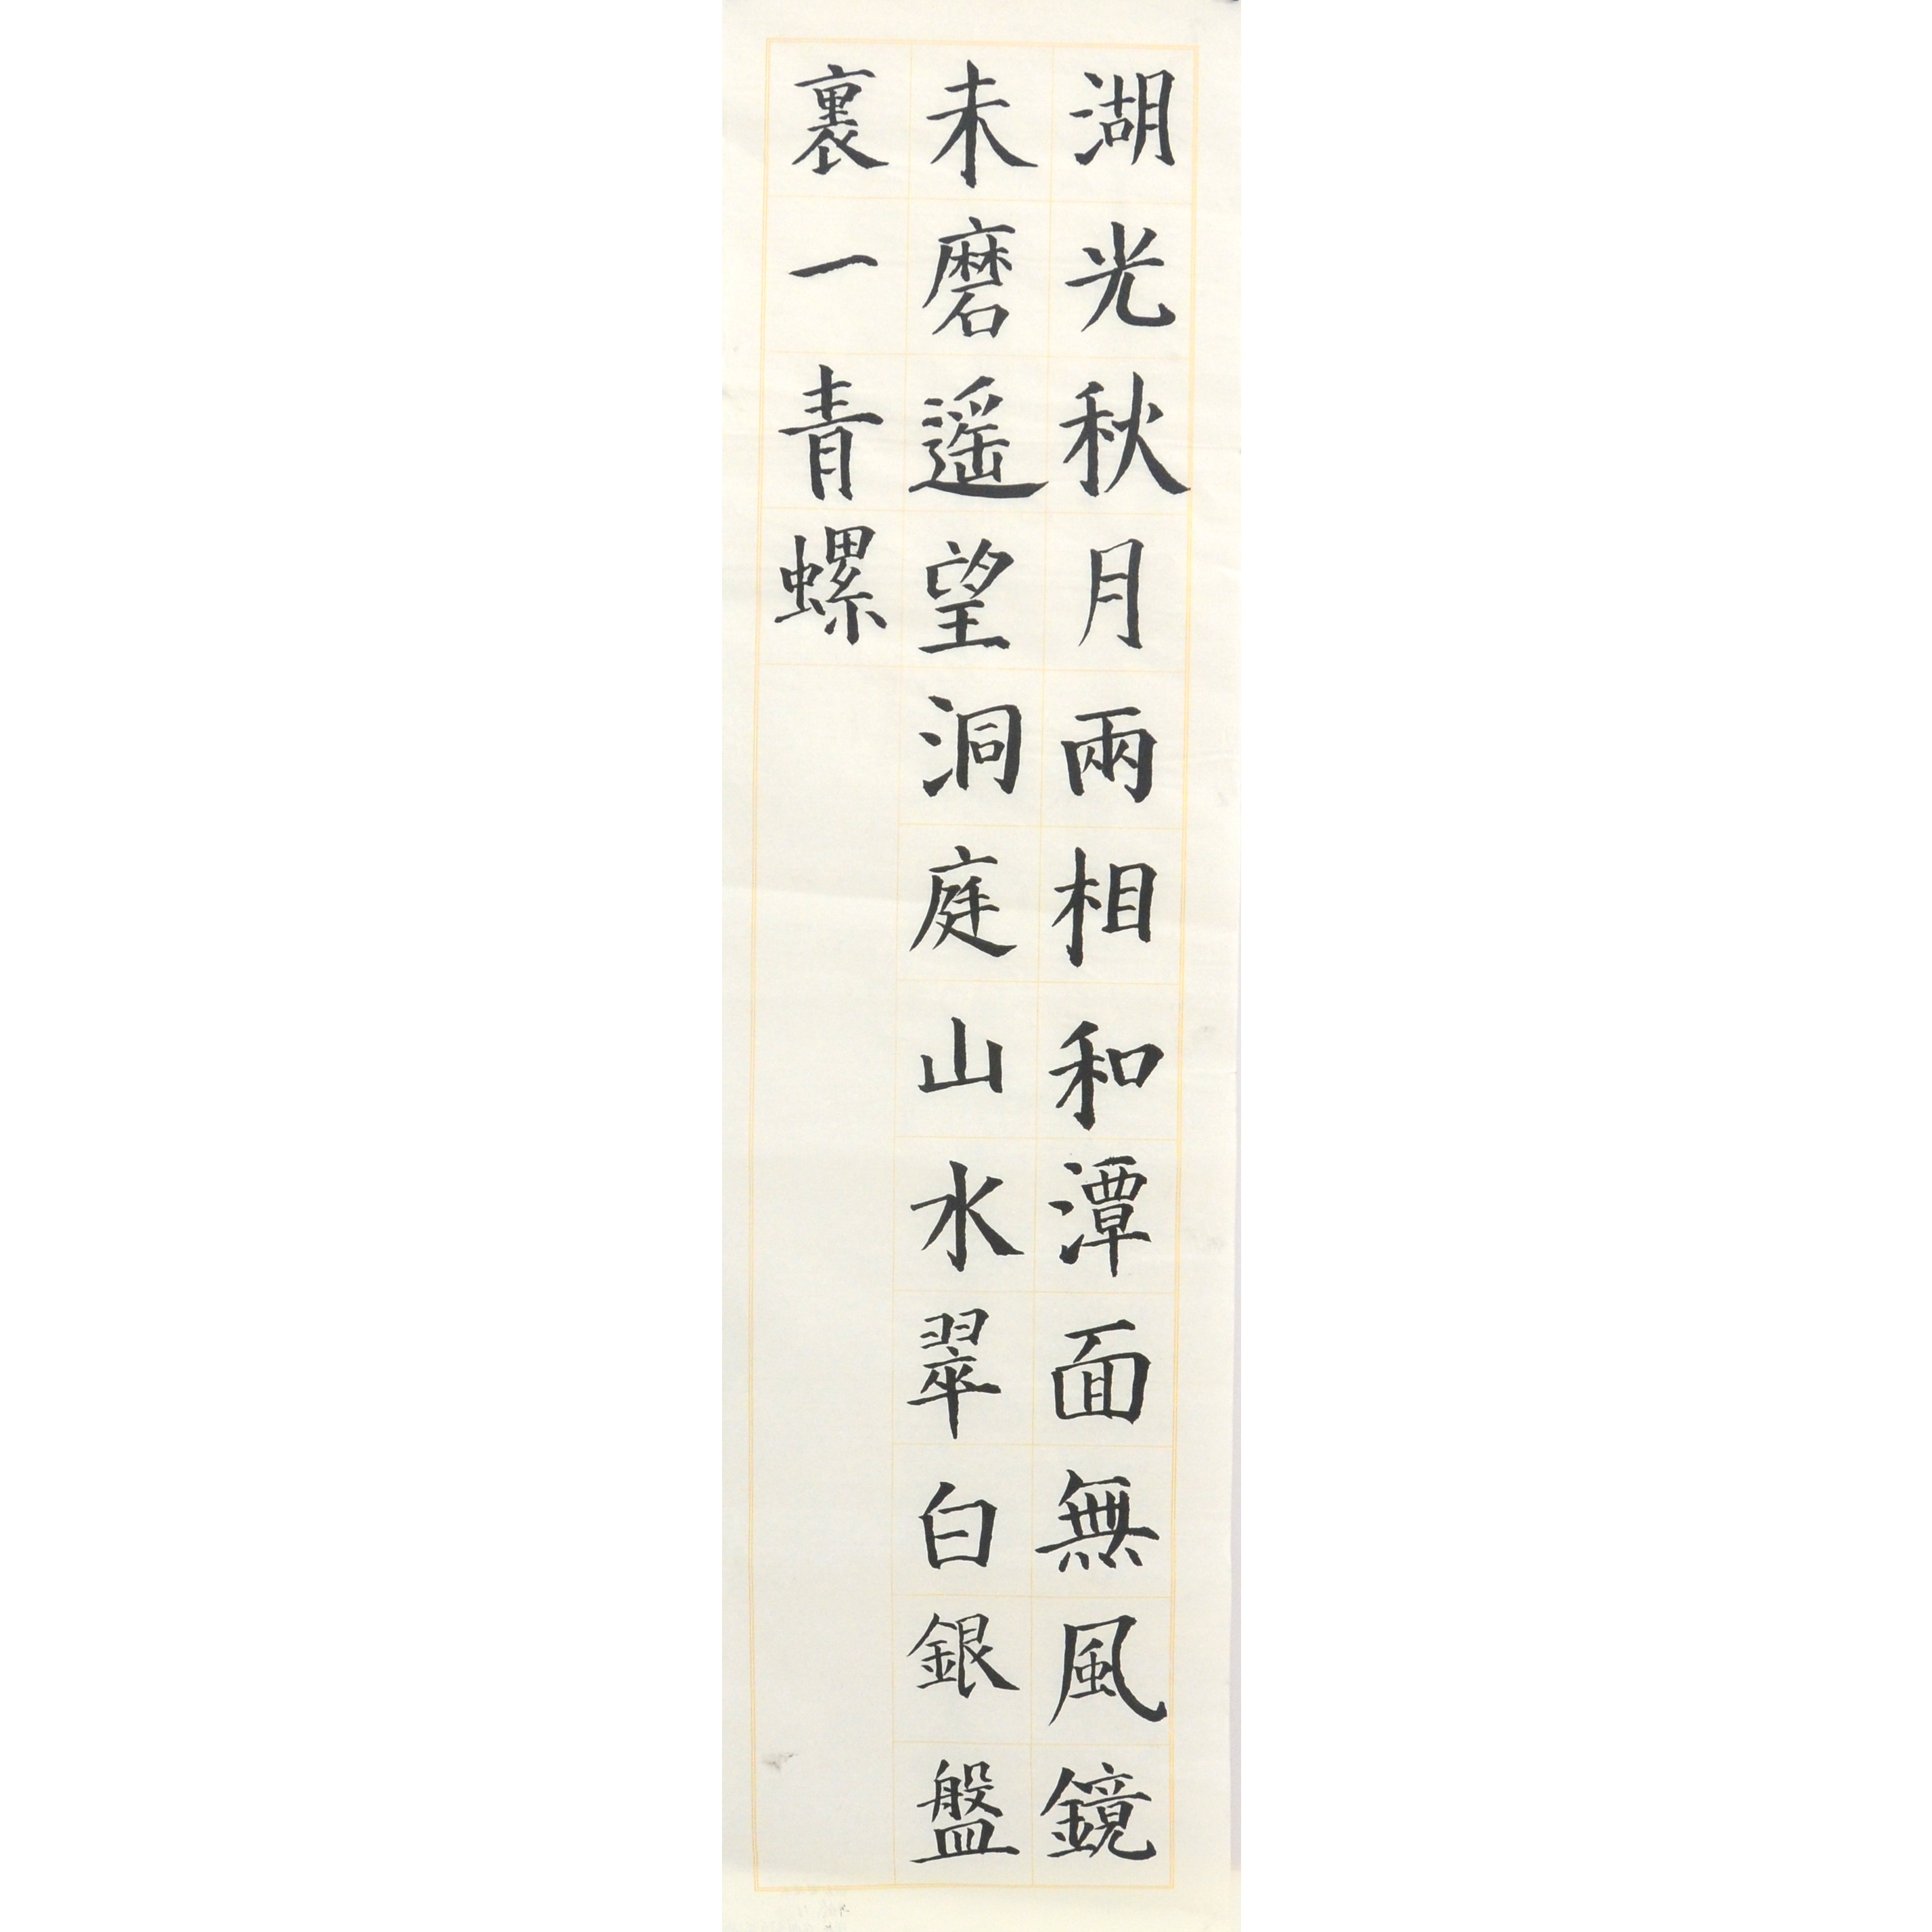 湖光秋月兩相和潭面無風鏡
未磨遙望洞庭山水翠白銀盤
裏一青螺